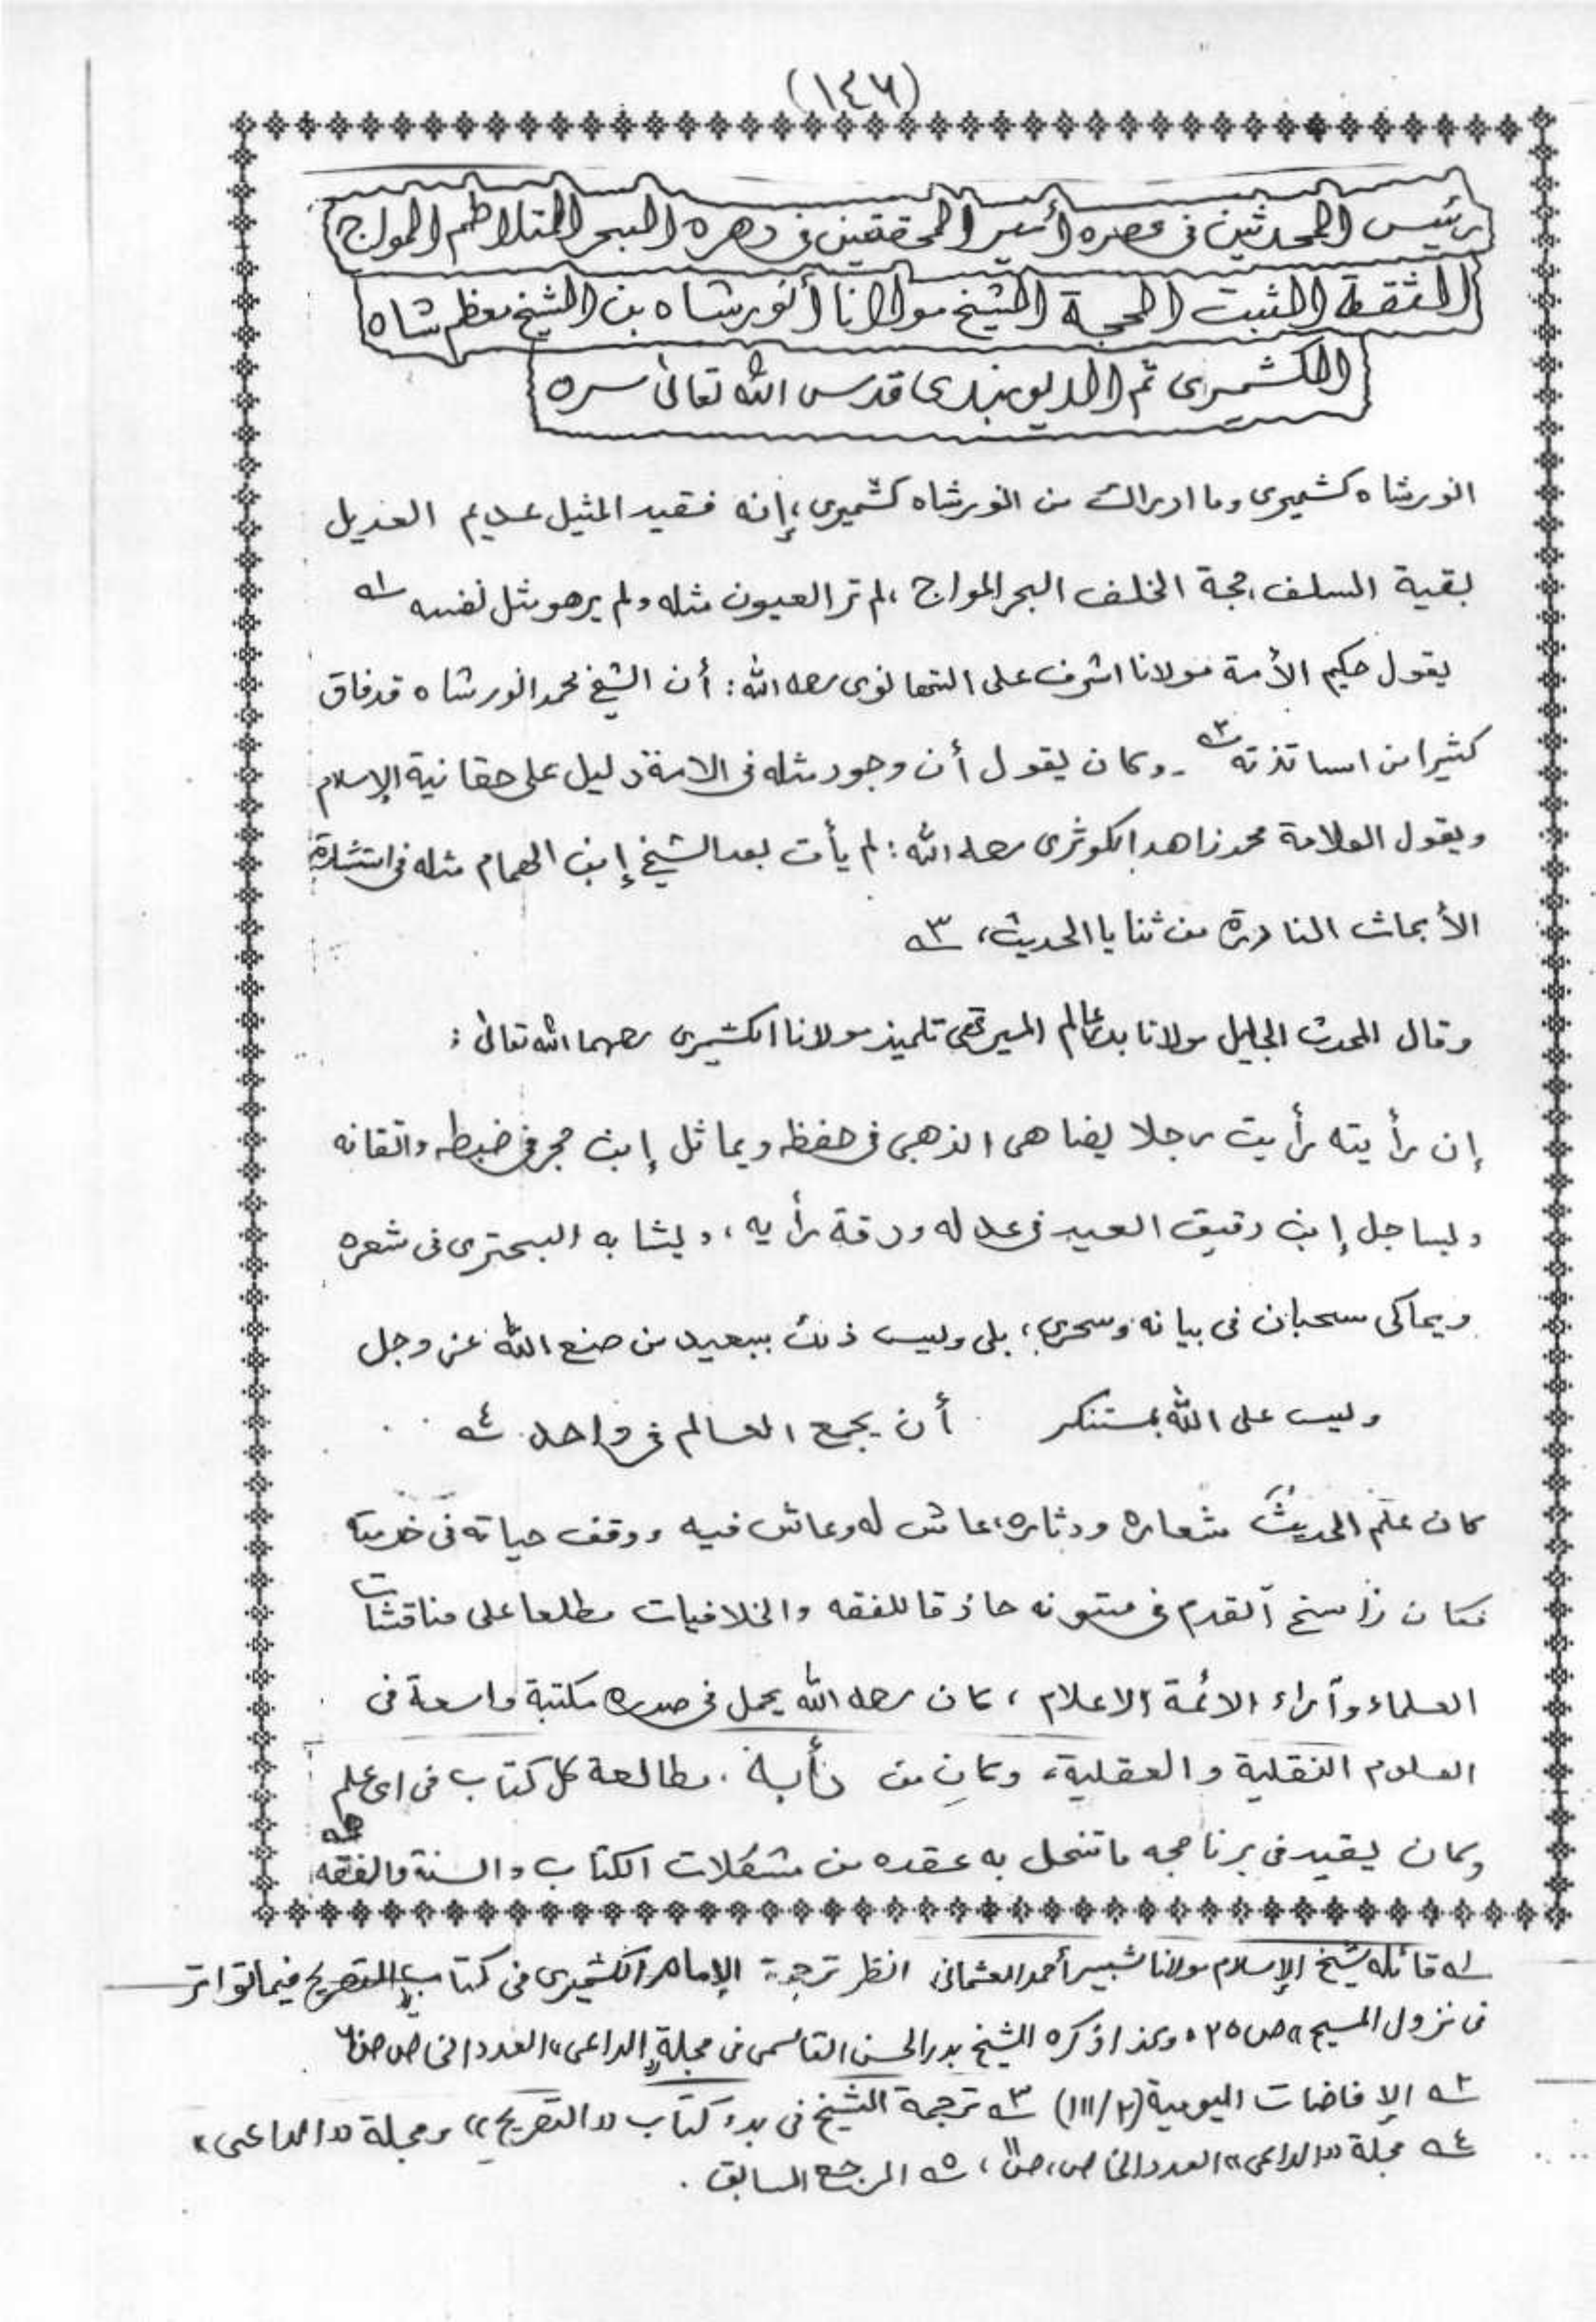 (١٤٦)
رئيس المحدثين فى عصره أمير المحققين فى دهره البحر المتلاطم المواج
الثقة الثبت الحجة الشيخ مولانا أنورشاه بن الشيخ معظم شاه
الكشميرى ثم الديوبندى قدس الله تعالى سره
انورشاه كشميرى وما ادراك من انورشاه كشميرى، إنه فقيد المثيل عديم العديل
بقية السلف، حجة الخلف البحر المواج، لم تر العيون مثله ولم ير هو مثل نفسه ١ـه
يقول حكيم الأمة مولانا اشرف على التهانوى رحمه الله: أن الشيخ محمد انور شاه قد فاق
كثيرا من اساتذته ٢ـه ـ وكان يقول أن وجود مثله فى الامة دليل على حقانية الإسلام
ويقول العلامة محمد زاهد الكوثرى رحمه الله: لم يأت بعد الشيخ إبن الهمام مثله فى استثارة
الأبحاث النادرة من ثنايا الحديث، ٣ـه
وقال المحدث الجليل مولانا بدر عالم الميرتهى تلميذ مولانا الكشميرى رحمهما الله تعالى:
إن رأيته رأيت رجلا يضاهى الذهبى فى حفظه ويماثل إبن حجر فى ضبطه واتقانه
ويساجل إبن دقيق العيد فى عدله ودقة رأيه، ويشابه البحترى فى شعره
ويحاكى سحبان فى بيانه وسحره، بلى وليس ذلك ببعيد من صنع الله عز وجل
وليس على الله بمستنكر أن يجمع العالم فى واحد ٤ـه
كان علم الحديث شعاره ودثاره، عاش له وعاش فيه ووقف حياته فى خدمته
فكان راسخ القدم فى متونه حاذقا للفقه والخلافيات مطلعا على مناقشات
العلماء وآراء الائمة الاعلام، كان رحمه الله يحمل فى صدره مكتبة واسعة فى
العلوم النقلية والعقلية، وكان من دأبه مطالعة كل كتاب فى اى علم
وكان يقيد فى برنامجه ما تنحل به عقده من مشكلات الكتاب والسنة والفقه ٥ـه
١ـه قائله شيخ الإسلام مولانا شبير أحمد العثمانى انظر ترجمة الإمام الكشميرى فى كتاب «التصريح فيما تواتر
فى نزول المسيح» ص ٢٥، وكذا ذكره الشيخ بدر الحسن القاسمى فى مجلة «الداعى» العدد الخاص
٢ـه الإفاضات اليومية (٢/١١١) ٣ـه ترجمة الشيخ فى بدء كتاب «التصريح» ومجلة «الداعى»
٤ـه مجلة «الداعى» العدد الخاص، ص ١١، ٥ـه المرجع السابق.